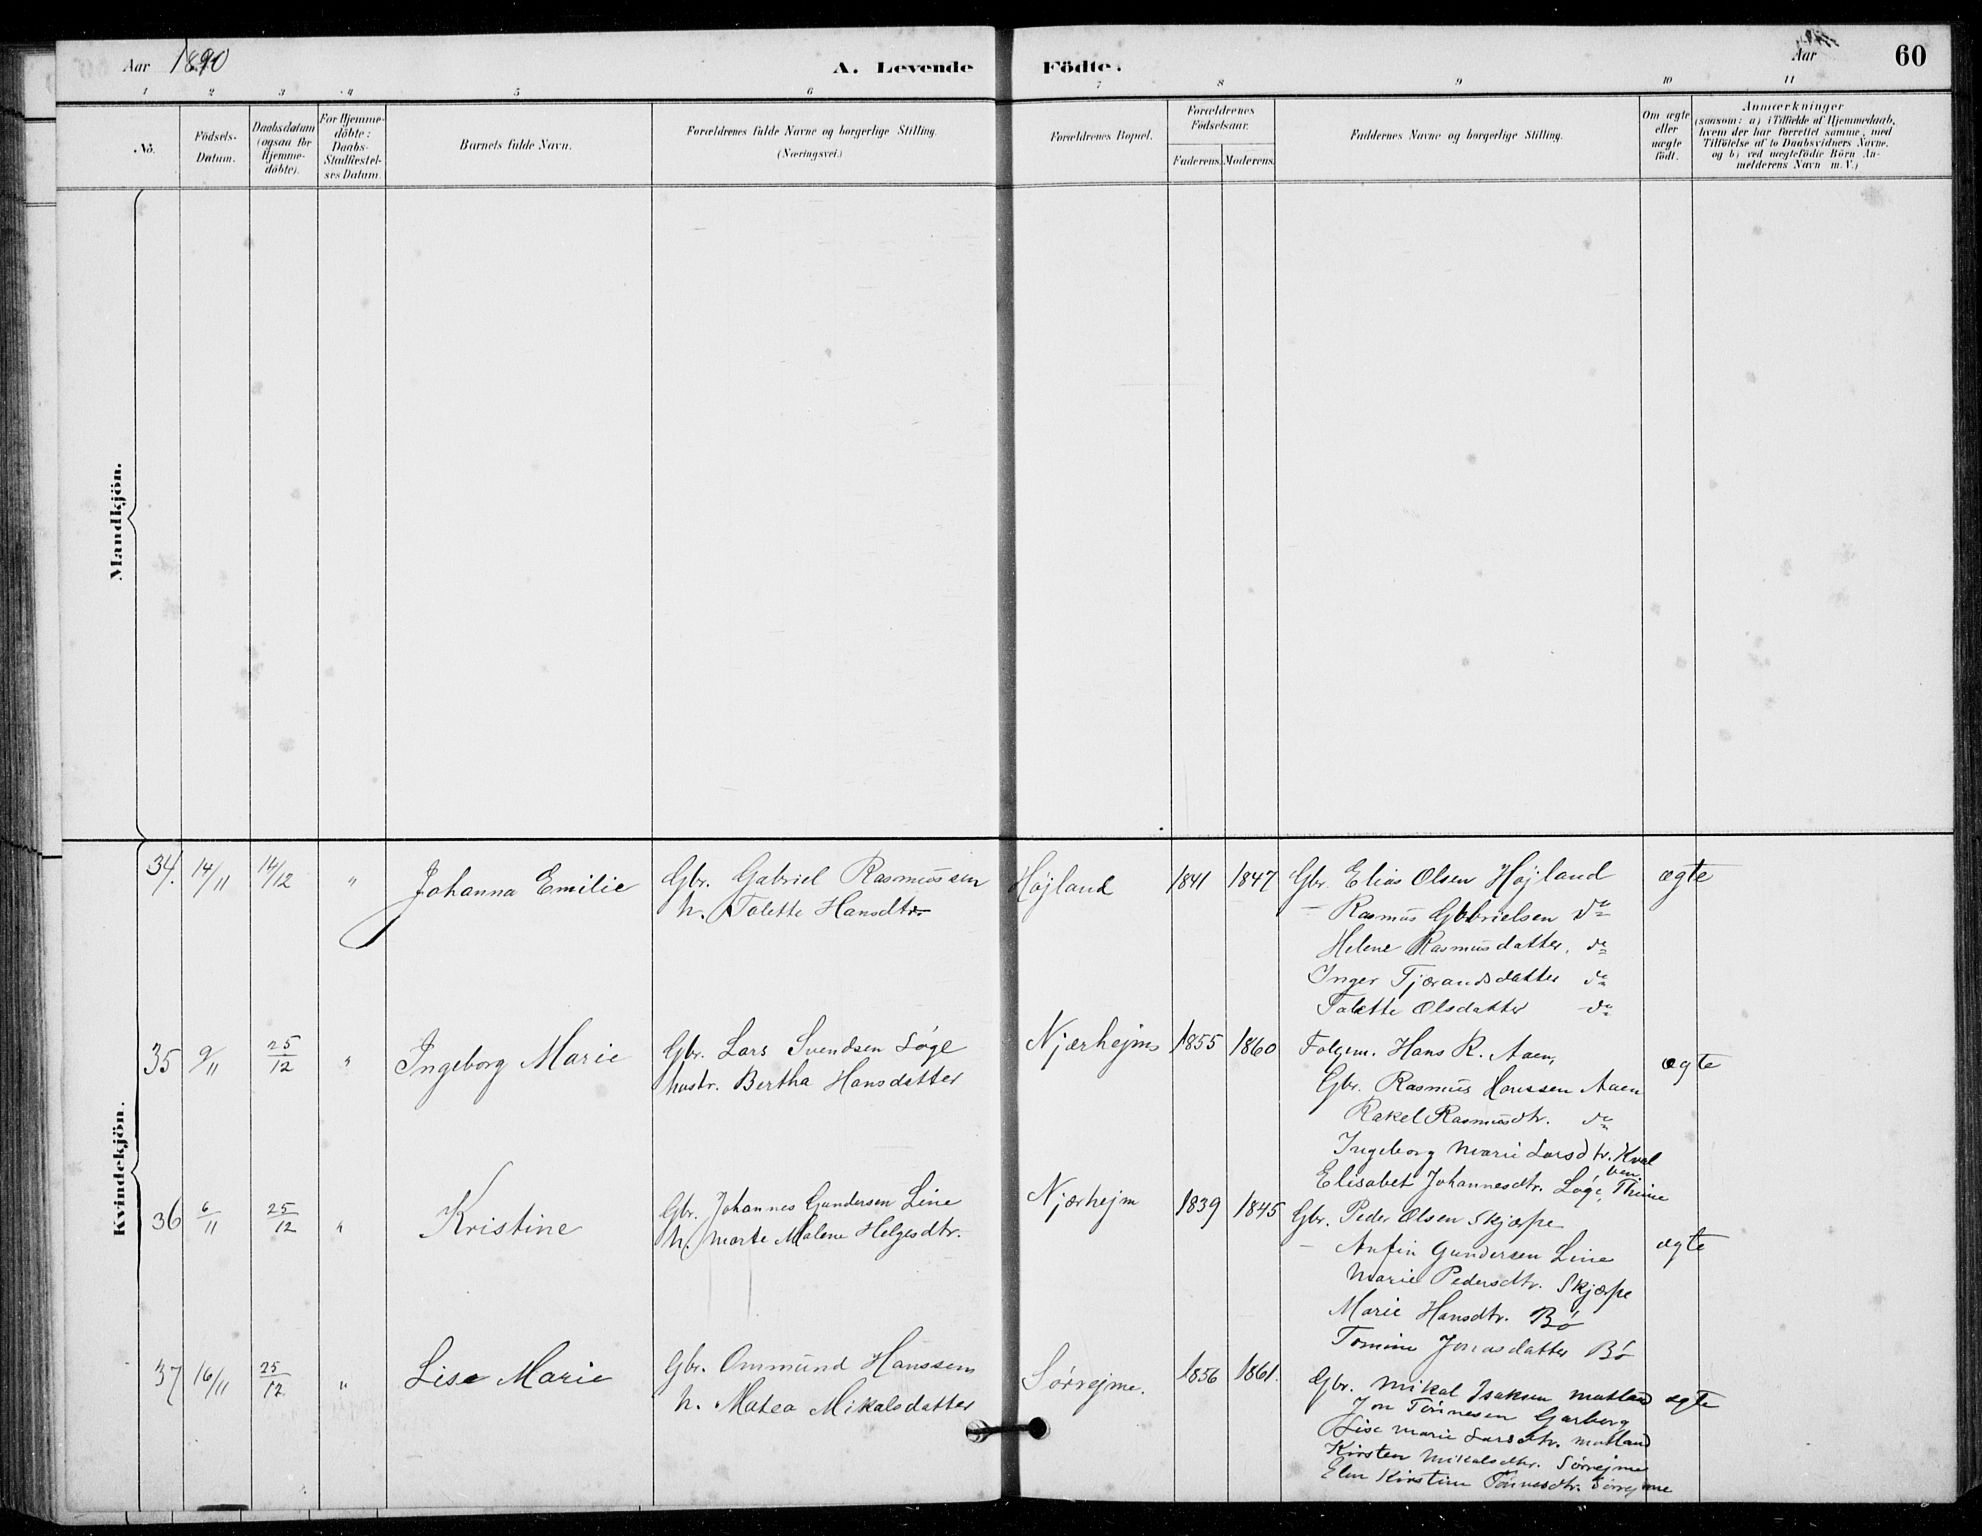 Aar 1890
A. Levende Födte.
Aar
60
1 2 3 4 5 6 7 8 9 10 11
No.
Födsels-Datum.
Daabsdatum (ogsaa for Hjemme-döbte).
For Hjemme-döbte: Daabs-Stadfæstel-ses Datum.
Barnets fulde Navn.
Forældrenes fulde Navne og borgerlige Stilling.
(Næringsvei.)
Forældrenes Bopæl.
Forældrenes Födselsaar.
Faderens. Moderens.
Faddernes Navne og borgerlige Stilling.
Om ægte eller uægte födt.
Anmærkninger
(saasom: a) i Tilfælde af Hjemmedaab,
hvem der har forrettet samme, med
Tilföielse af to Daabsvidners Navne,
og b) ved uægtefödte Börn An-
melderens Navn m.V.)
Mandkjön.
Kvindekjön.
34. 14/11 14/12 " Johanna Emilie
Gbr. Gabriel Rasmussen
h. Tolette Hansdtr.
Højland 1841 1847
Gbr. Elias Olsen Højland ægte
— Rasmus Gabrielsen do
Helene Rasmusdatter. do
Inger Tjærandsdatter do
Tolette Olsdatter do
35 9/11 25/12 " Ingeborg Marie
Gbr. Lars Svendsen Løge
hustr. Bertha Hansdatter
Njærhejm 1855 1860
Folgem. Hans R. Aaen, ægte
Gbr. Rasmus Hanssen Aaen
Rakel Rasmusdtr. do
Ingeborg Marie Larsdtr. Kval
ben
Elisabet Johannesdtr. Løge, Thime
36 6/11 25/12 " Kristine
Gbr. Johannes Gundersen Line
h. Marte Malene Helgesdtr.
Njærhejm 1839 1845
Gbr. Peder Olsen Skjærpe
— Anfin Gundersen Line ægte
Marie Pedersdtr. Skjærpe
Marie Hansdtr. Bø
Tomine Jonasdatter Bø
37 16/11 25/12 " Lise Marie
Gbr. Ommund Hanssen
h. Matea Mikalsdatter
Sørrejme. 1856 1861.
Gbr. Mikal Isaksen Motland ægte
Jon Tönnesen Garborg
Lise Marie Larsdtr. Motland
Kirsten Mikalsdtr. Sørrejme
Elen Kirstine Tönnesdtr. Sørrejme